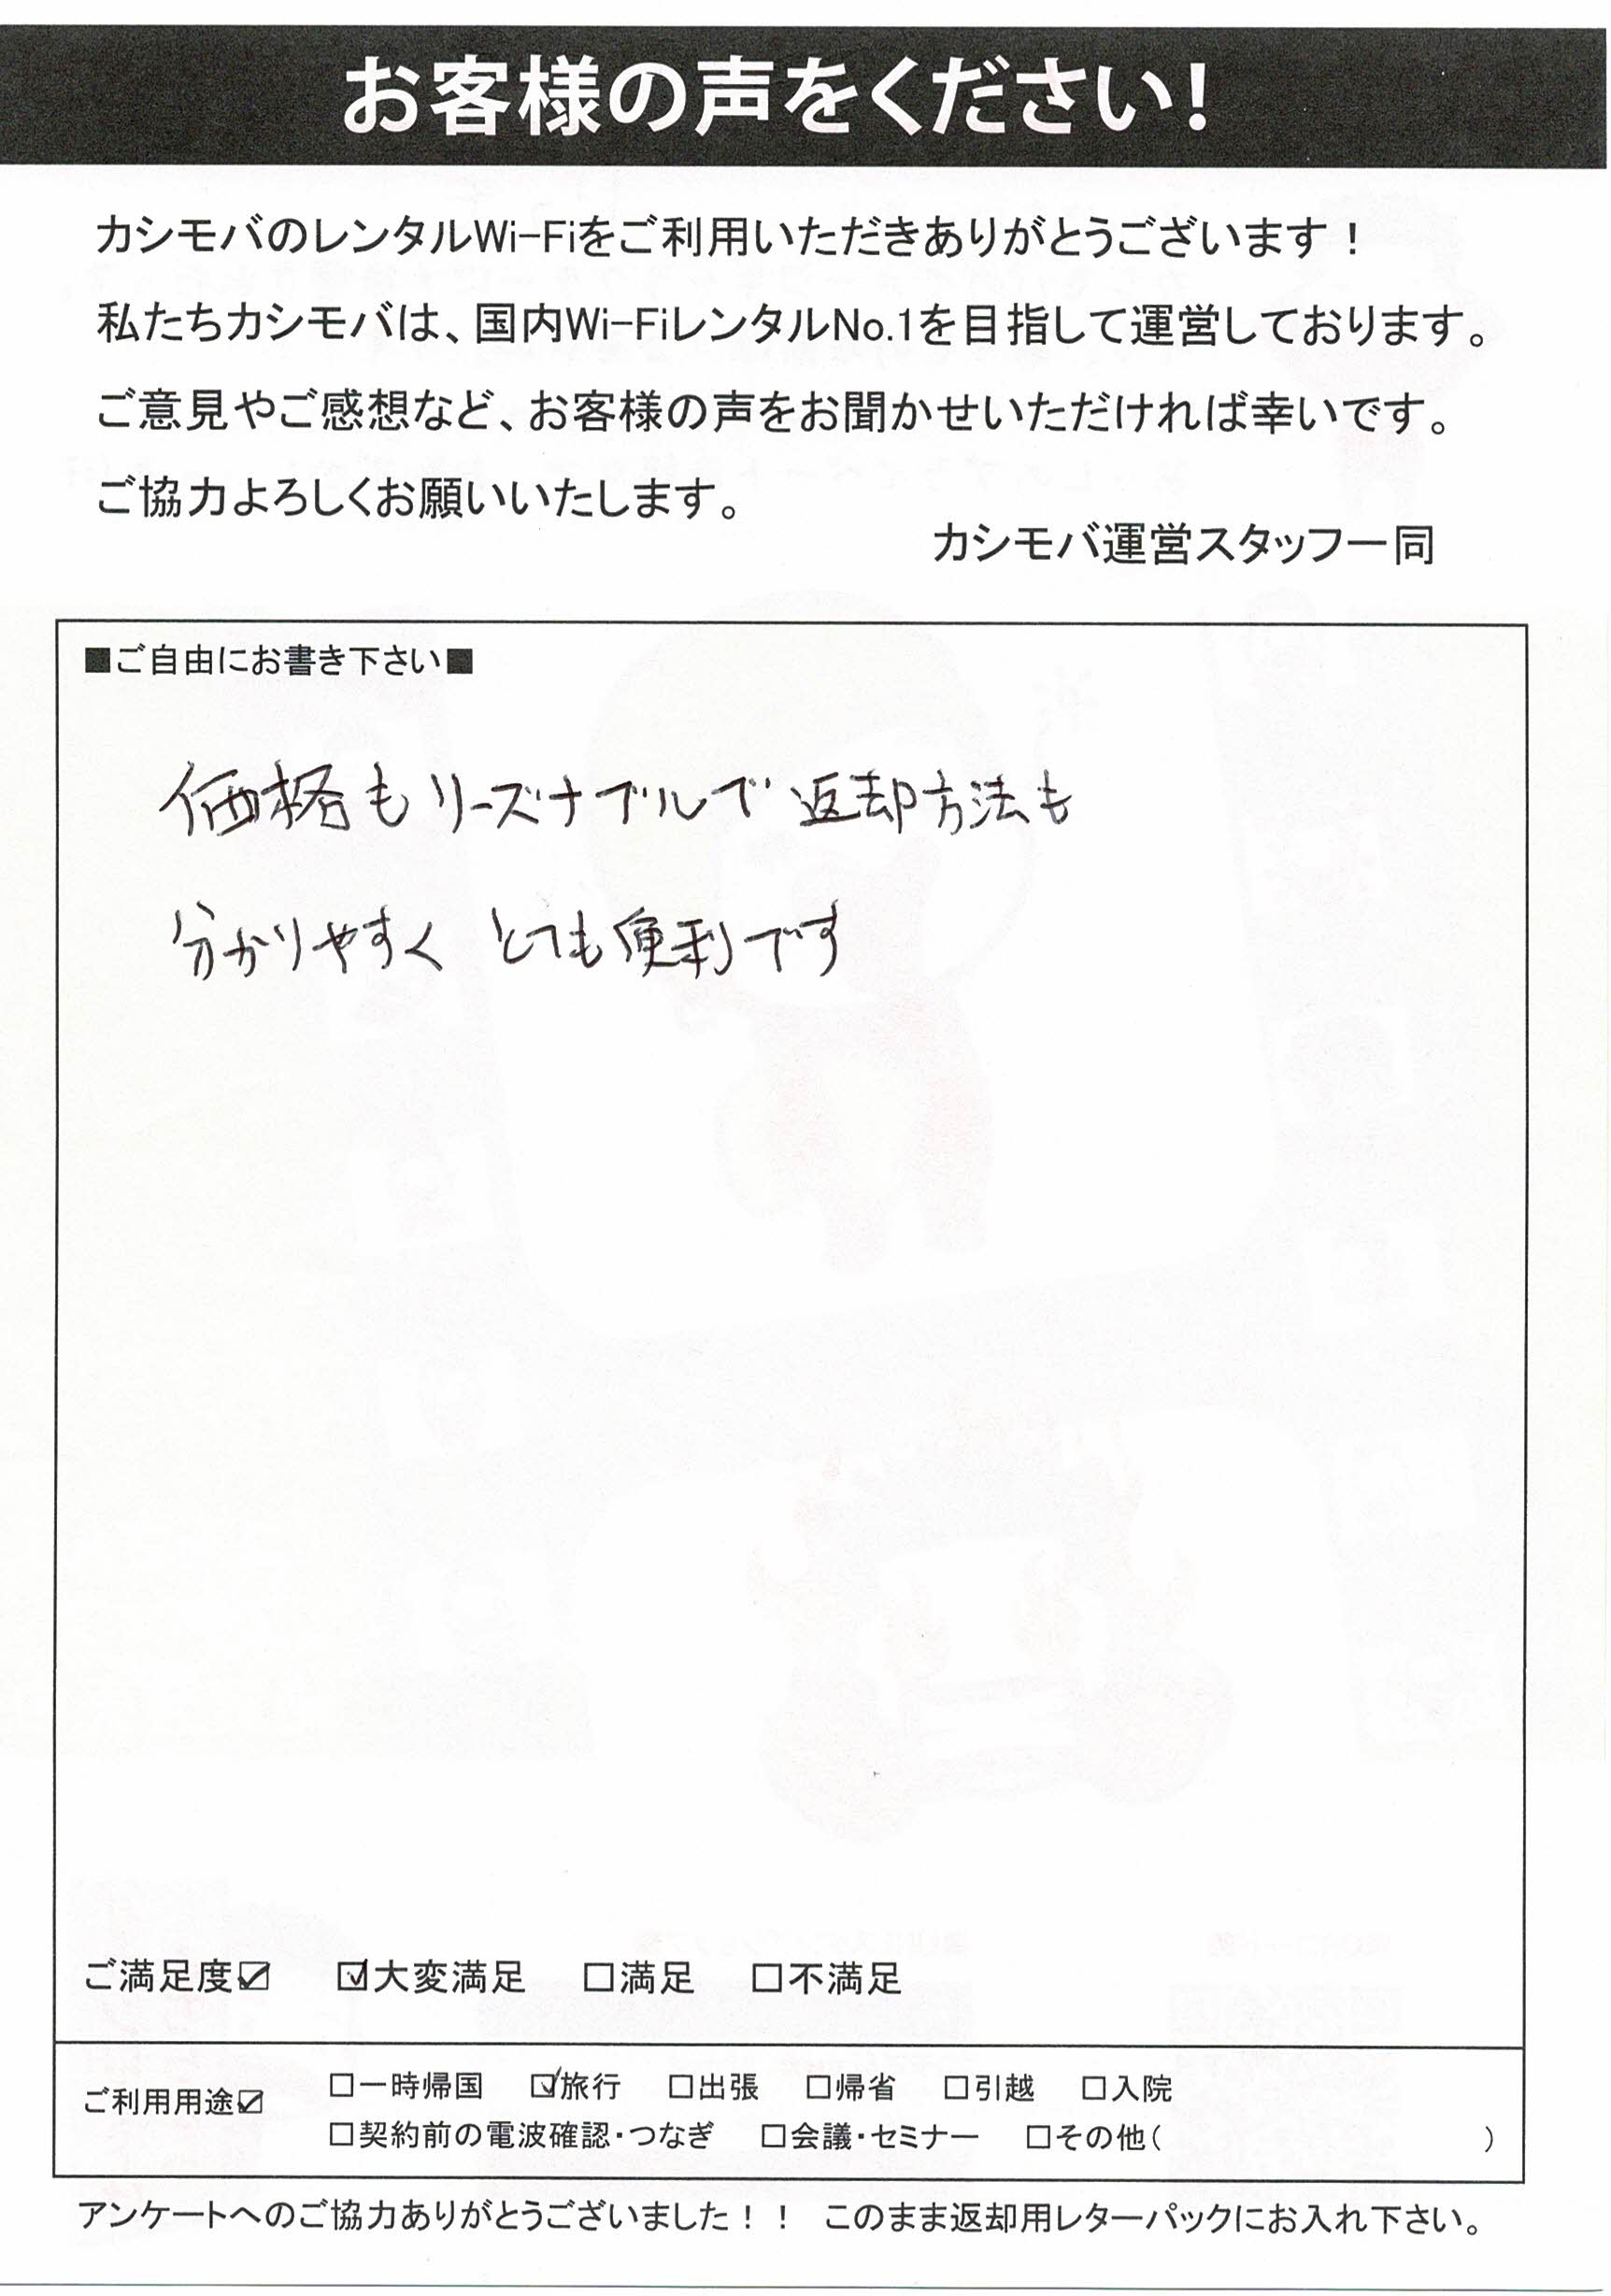 お客様の声をください!
カシモバのレンタルWi-Fiをご利用いただきありがとうございます！
私たちカシモバは、国内Wi-FiレンタルNo.1を目指して運営しております。
ご意見やご感想など、お客様の声をお聞かせいただければ幸いです。
ご協力よろしくお願いいたします。
カシモバ運営スタッフ一同
■ご自由にお書き下さい■
価格もリーズナブルで返却方法も
分かりやすく とても便利です
ご満足度☑ ☑大変満足 □満足 □不満足
ご利用用途☑ □一時帰国 ☑旅行 □出張 □帰省 □引越 □入院
□契約前の電波確認・つなぎ □会議・セミナー □その他( )
アンケートへのご協力ありがとうございました！！ このまま返却用レターパックにお入れ下さい。